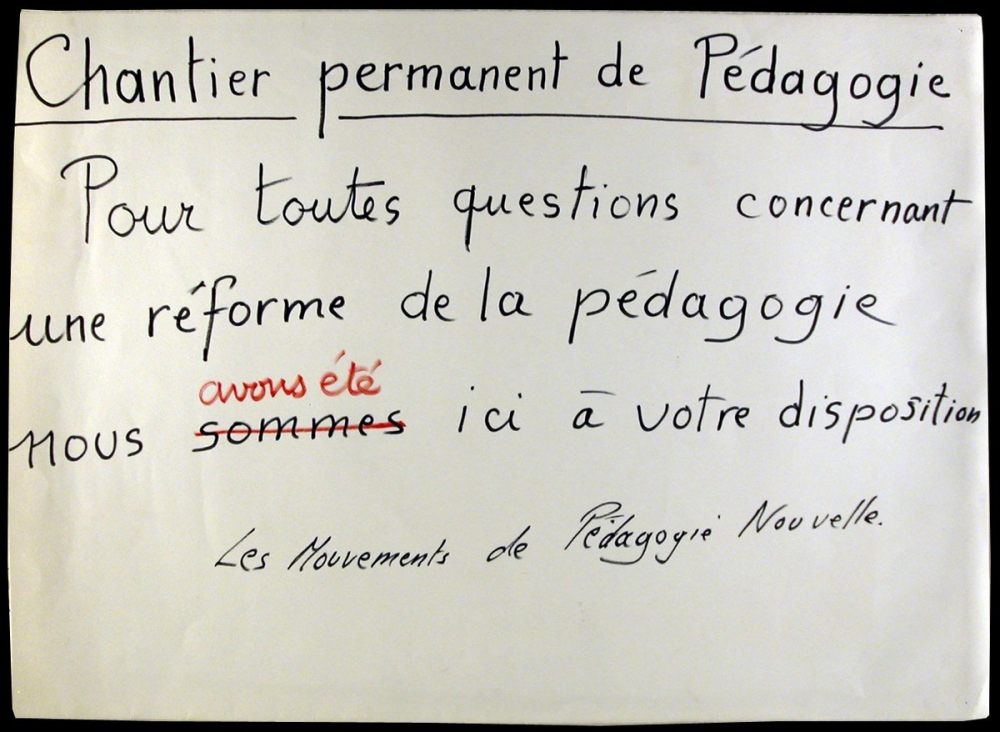 Chantier permanent de Pédagogie
Pour toutes questions concernant
une réforme de la pédagogie
avons été
nous sommes ici à votre disposition
Les Mouvements de Pédagogie Nouvelle.